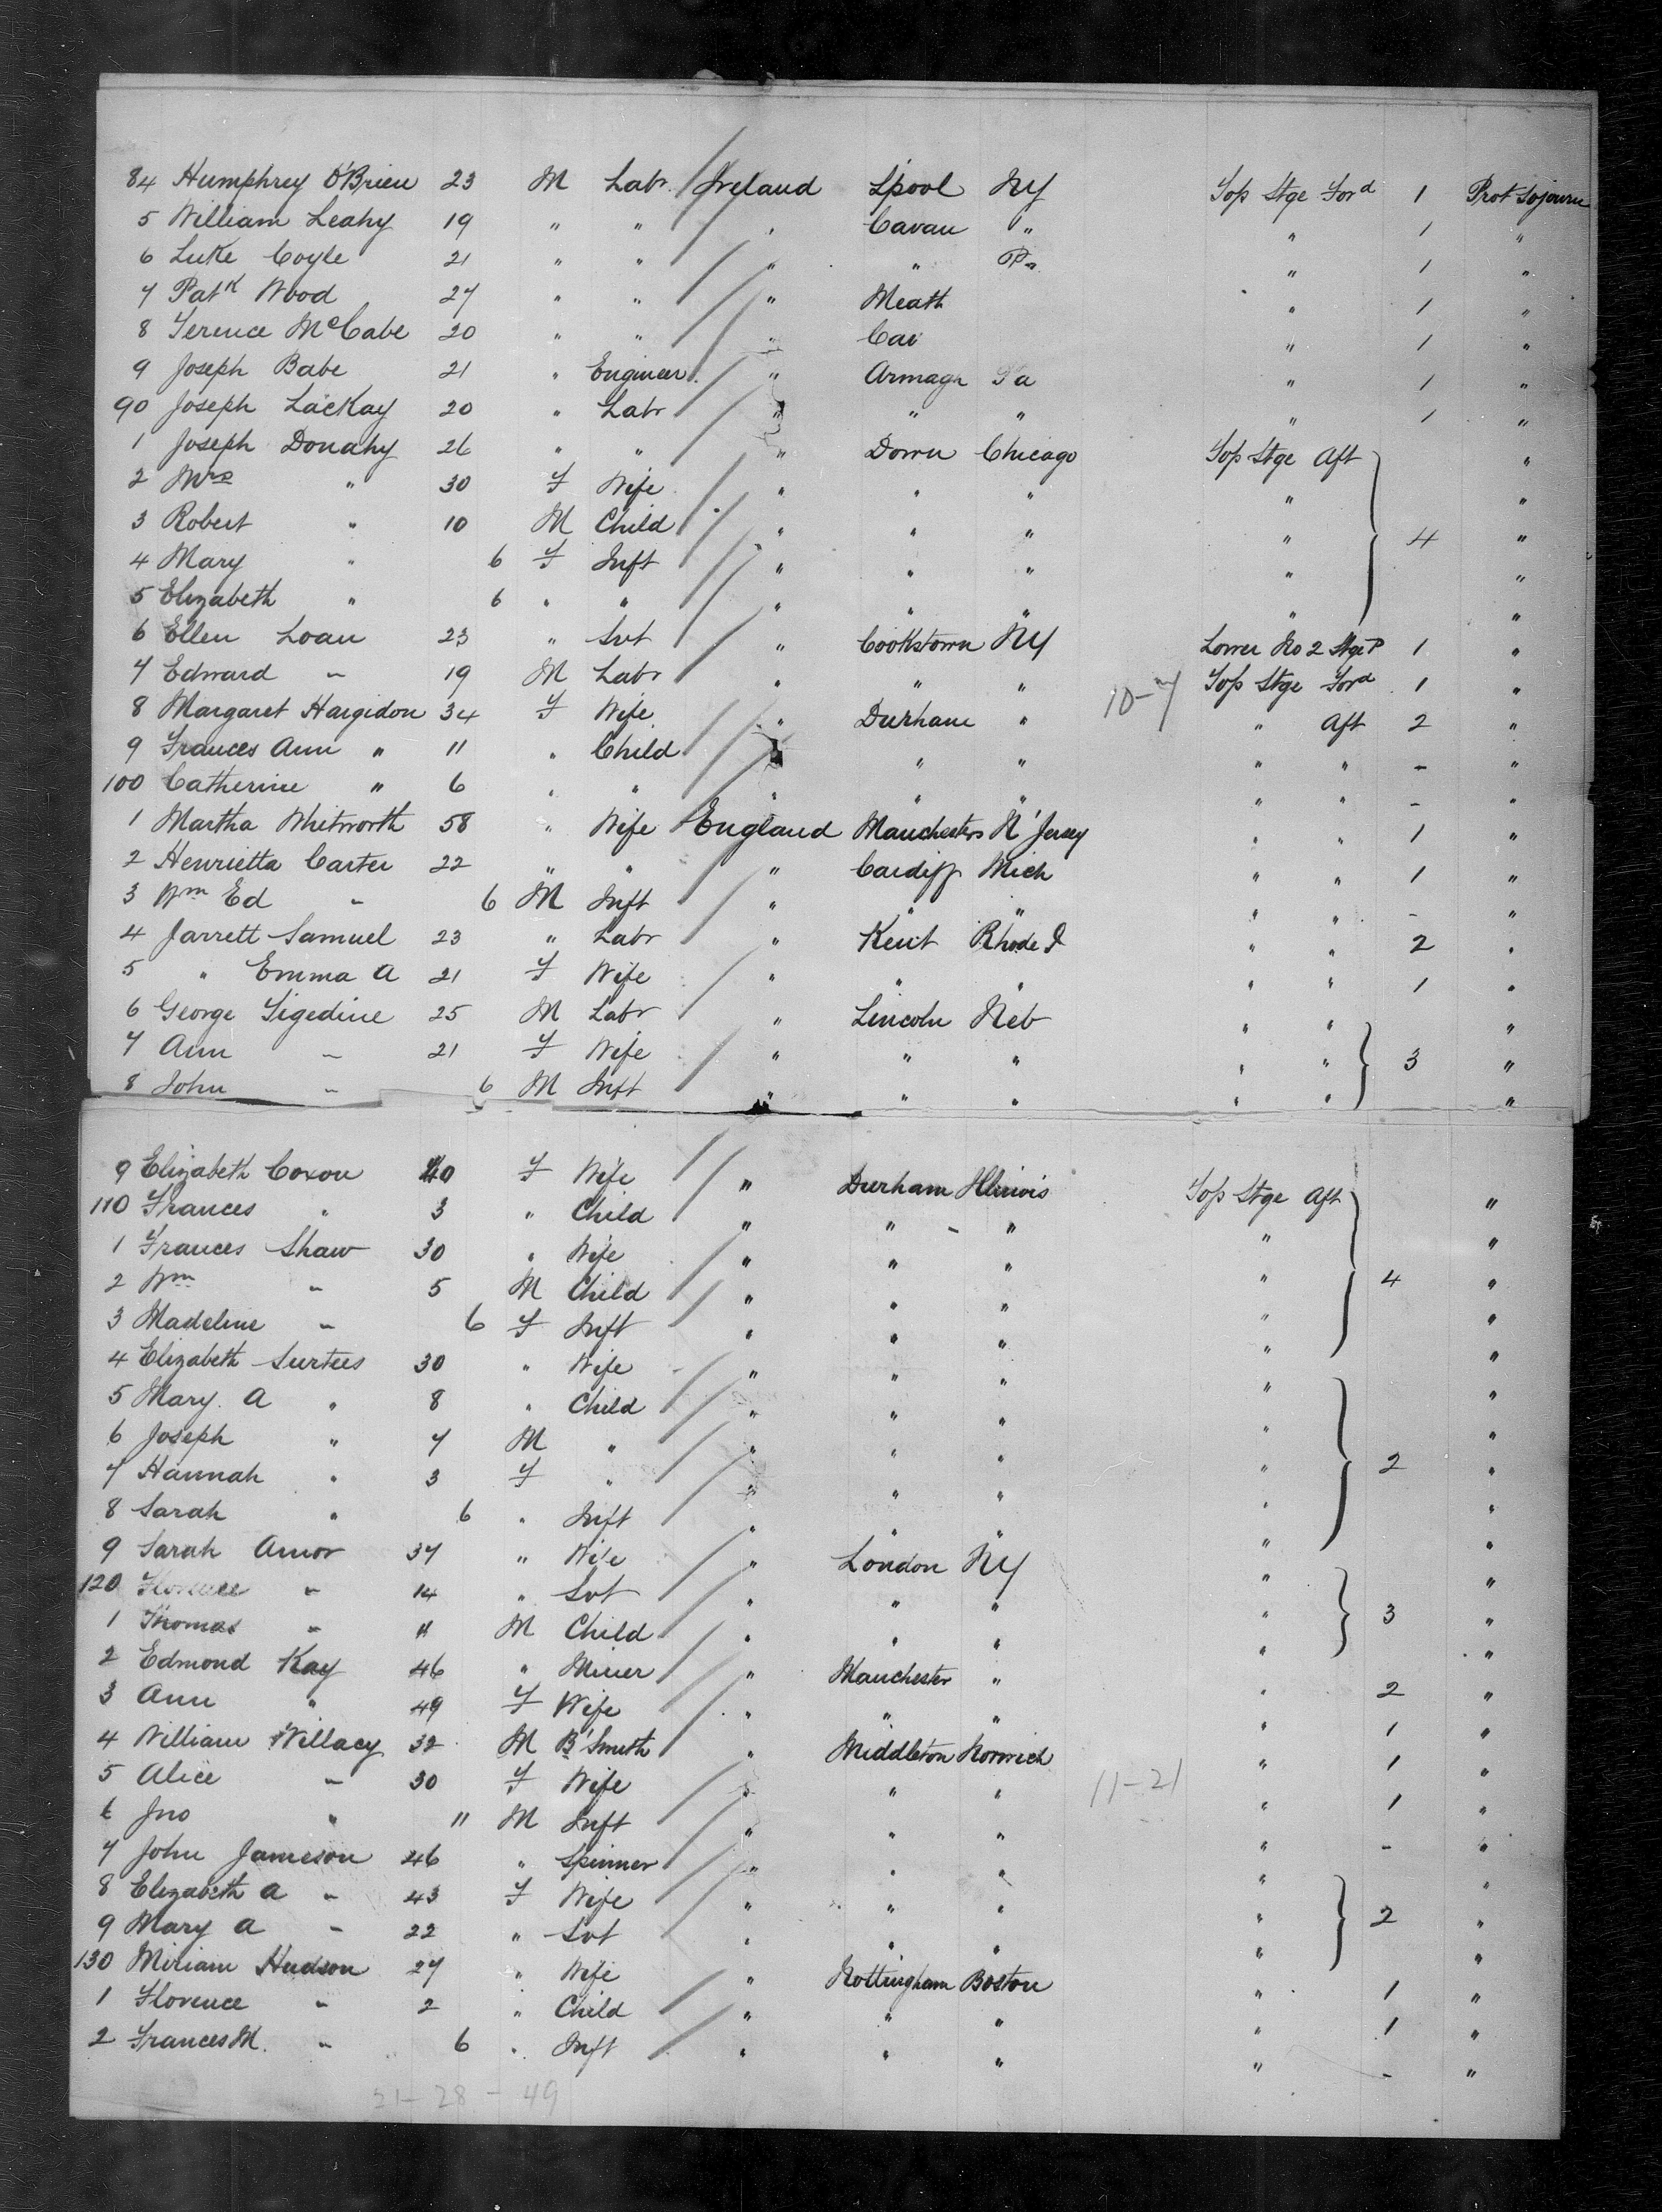 84 Humphrey O'Brien 23 M Labr Ireland L'pool NY Top Stge Ford 1 Prot Sojourn
5 William Leahy 19 " " " Cavan " " 1 "
6 Luke Coyle 21 " " " " Pa " 1 "
7 Patk Wood 27 " " " Meath " 1 "
8 Terence McCabe 20 " " " Cav " 1 "
9 Joseph Babe 21 " Engineer " Armagh Pa " 1 "
90 Joseph Lackay 20 " Labr " " " " 1 "
1 Joseph Donahy 26 " " " Down Chicago Top Stge Aft "
2 Mrs " 30 F Wife " " " " "
3 Robert " 10 M Child " " " " 4 "
4 Mary " 6 F Inft " " " " "
5 Elizabeth " 6 " " " " " " "
6 Ellen Loan 23 " Svt " Cookstown NY Lower No 2 Stge P 1 "
7 Edward " 19 M Labr " " " 10-7 Top Stge Ford 1 "
8 Margaret Hargidon 34 F Wife " Durham " " Aft 2 "
9 Frances Ann " 11 " Child " " " " " - "
100 Catherine " 6 " " " " " " " - "
1 Martha Whitworth 58 " Wife England Manchester N' Jersey " " 1 "
2 Henrietta Carter 22 " " " Cardiff Mich " " 1 "
3 Wm Ed " 6 M Inft " " " " " - "
4 Jarrett Samuel 23 " Labr " Kent Rhode I " " 2 "
5 " Emma A 21 F Wife " " " " " 1 "
6 George Sigedine 25 M Labr " Lincoln Neb " " "
7 Ann " 21 F Wife " " " " " 3 "
8 John " 6 M Inft " " " " " "
9 Elizabeth Coxon 40 F Wife " Durham Illinois Top Stge Aft "
110 Frances " 3 " Child " " - " " "
1 Frances Shaw 30 " Wife " " " " 4 "
2 Wm " 5 M Child " " " " "
3 Madeline " 6 F Inft " " " " "
4 Elizabeth Surtees 30 " Wife " " " " "
5 Mary A " 8 " Child " " " " "
6 Joseph " 7 M " " " " " 2 "
7 Hannah " 3 F " " " " " "
8 Sarah " 6 " Inft " " " " "
9 Sarah Amor 37 " Wife " London NY " "
120 Florence " 14 " Svt " " " " 3 "
1 Thomas " 11 M Child " " " " "
2 Edmond Kay 46 " Miner " Manchester " " 2 "
3 Ann " 49 F Wife " " " " 1 "
4 William Willacy 32 M B'Smith " Middleton Norwich " 1 "
5 Alice " 30 F Wife " " " 11-21 " 1 "
6 Jno " 11 M Inft " " " " - "
7 John Jameson 46 " Spinner " " " " "
8 Elizabeth A " 43 F Wife " " " " 2 "
9 Mary A " 22 " Svt " " " " "
130 Miriam Hudson 27 " Wife " Nottingham Boston " 1 "
1 Florence " 2 " Child " " " " 1 "
2 Frances M. " 6 " Inft " " " " - "
21-28-49